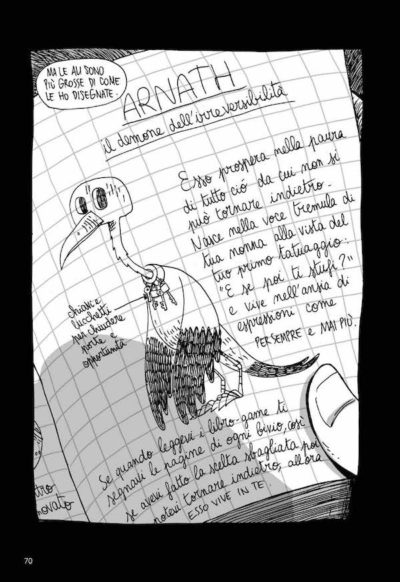 MA LE ALI SONO
PIÙ GROSSE DI COME
LE HO DISEGNATE.
ARNATH
il demone dell'irreversibilità
Esso prospera nella paura
di tutto ciò da cui non si
può tornare indietro.
Nasce nella voce tremula di
tua nonna alla vista del
tuo primo tatuaggio:
"E se poi ti stufi?"
e vive nell'ansia di
espressioni come
PER SEMPRE e MAI PIÙ.
chiavi e
lucchetti
per chiudere
porte e
opportunità
Se quando leggevi i libro-game ti
segnavi le pagine di ogni bivio, così
se avevi fatto la scelta sbagliata poi
potevi tornare indietro, allora
ESSO VIVE IN TE.
tro
novato
70